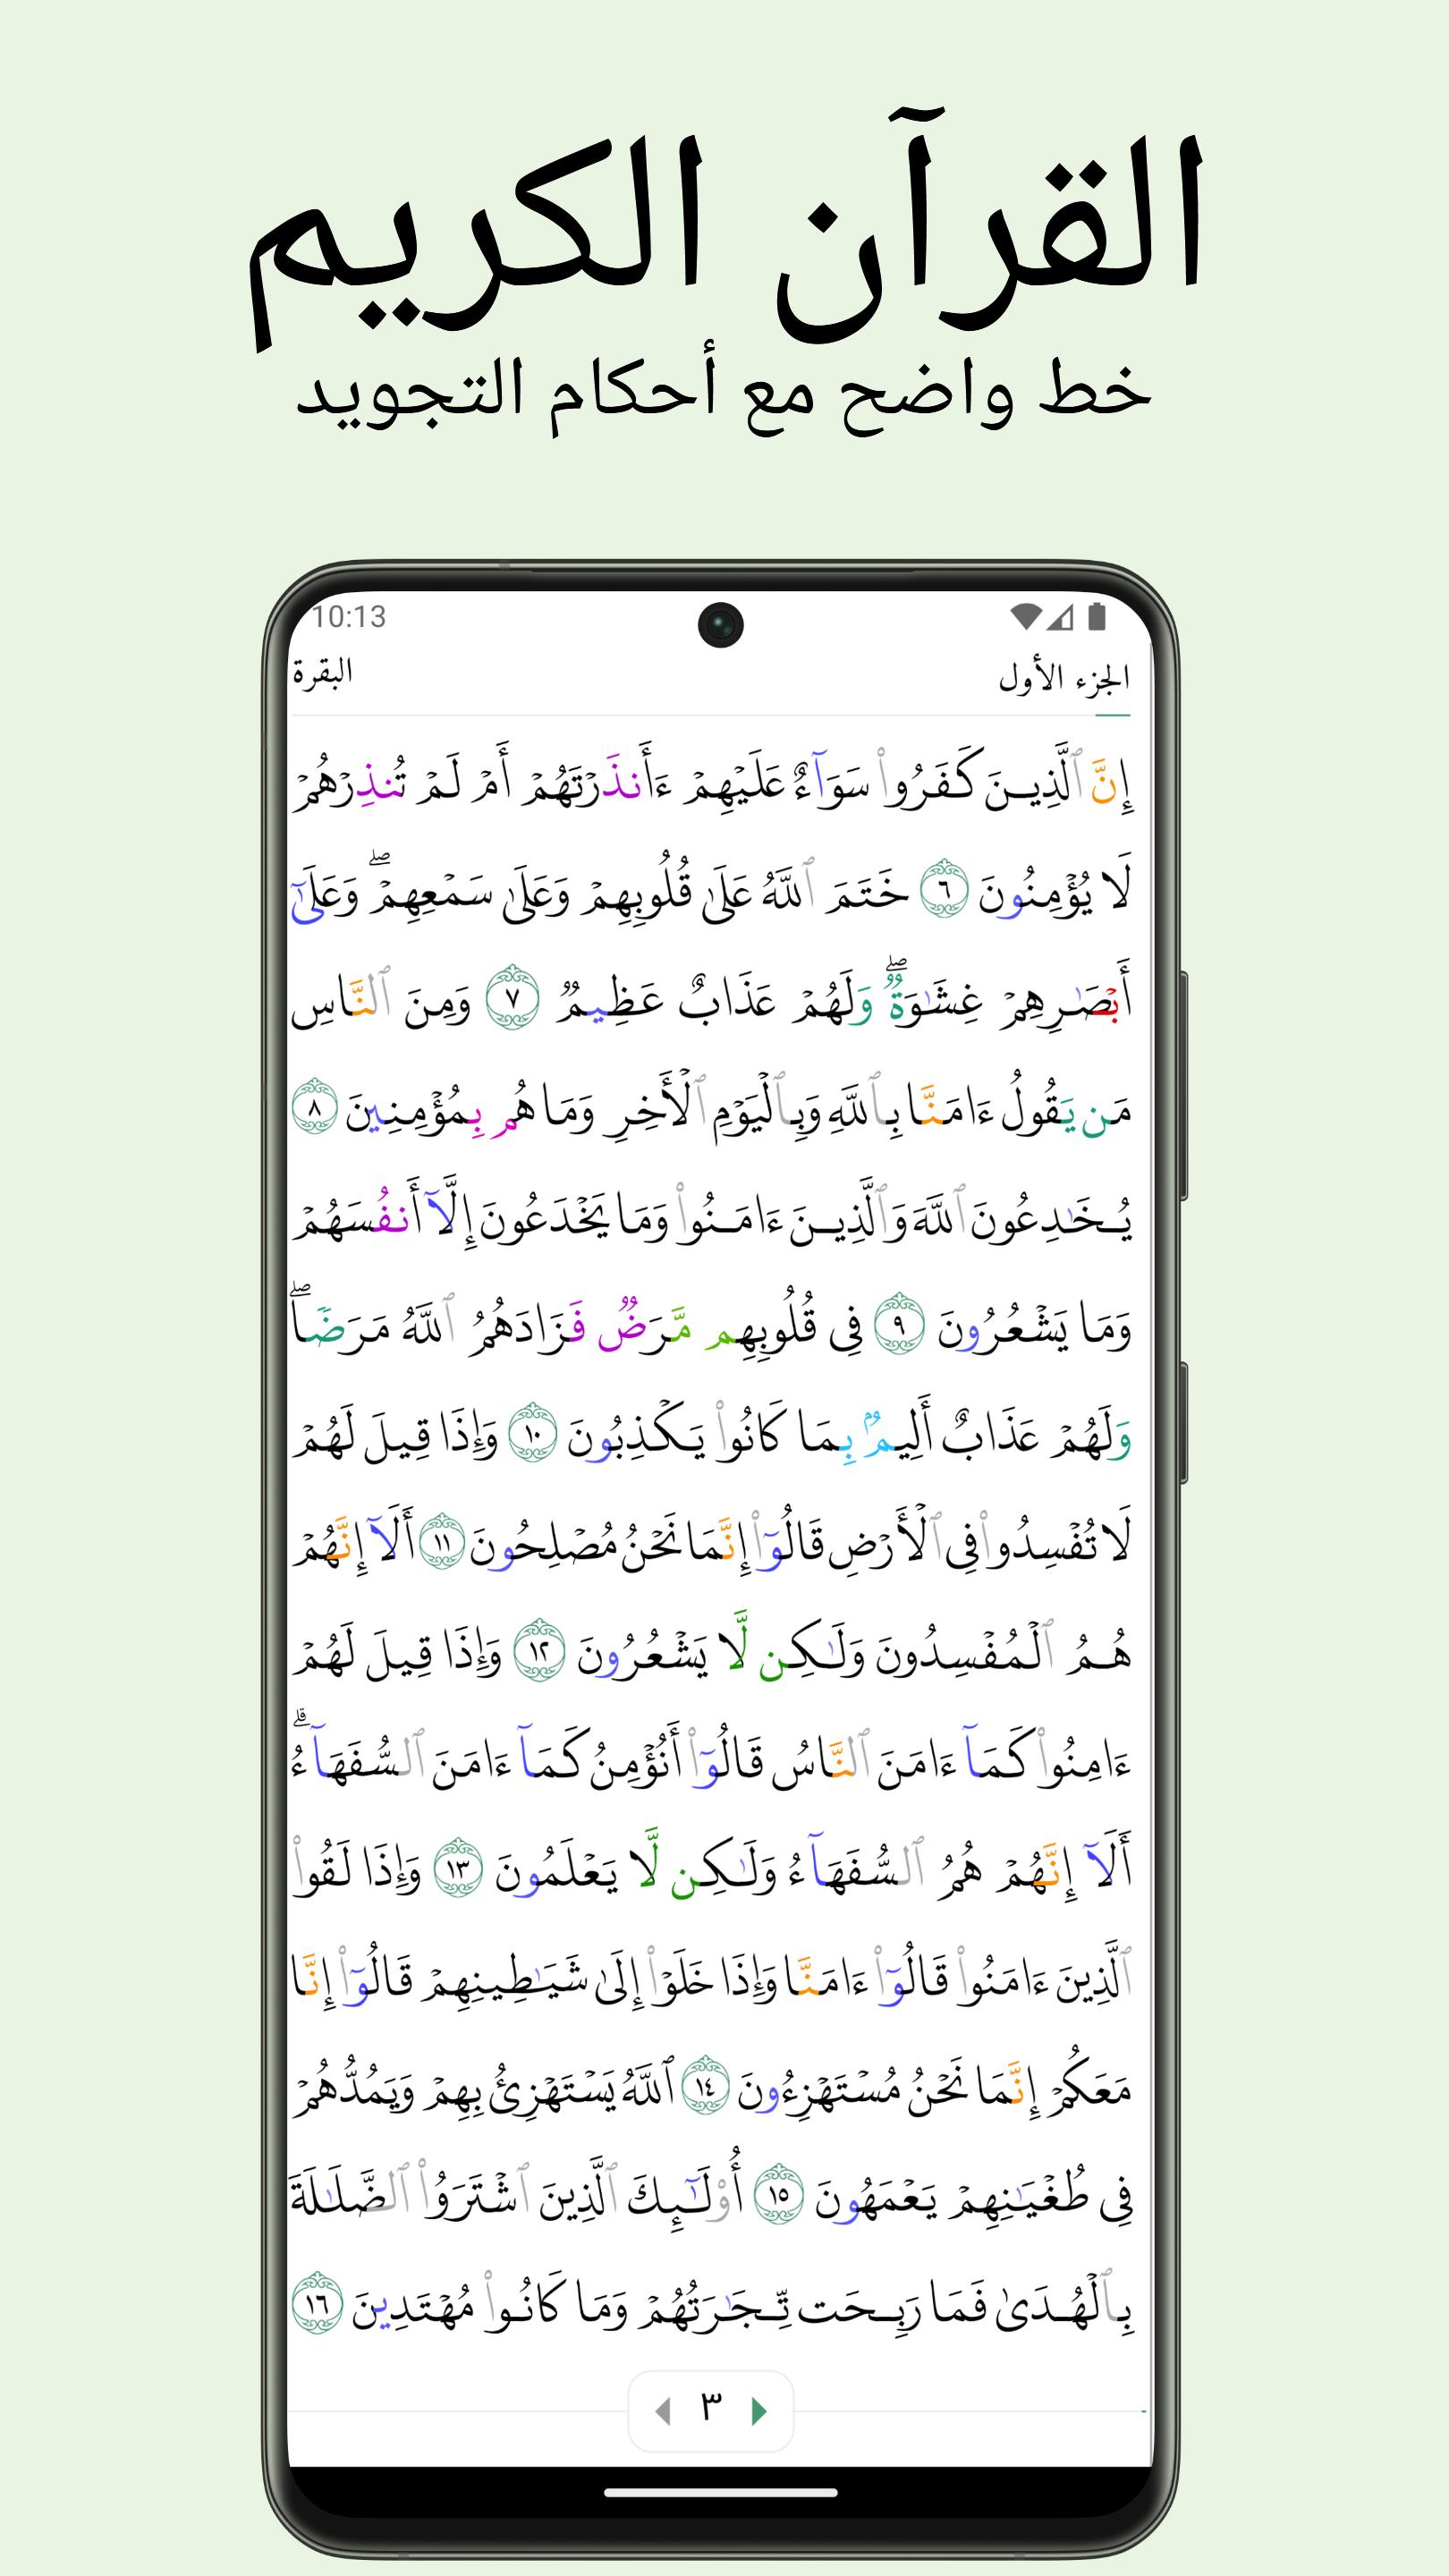 القرآن الكريم
خط واضح مع أحكام التجويد
10:13
الجزء الأول البقرة
إِنَّ ٱلَّذِينَ كَفَرُوا۟ سَوَآءٌ عَلَيْهِمْ ءَأَنذَرْتَهُمْ أَمْ لَمْ تُنذِرْهُمْ
لَا يُؤْمِنُونَ ٦ خَتَمَ ٱللَّهُ عَلَىٰ قُلُوبِهِمْ وَعَلَىٰ سَمْعِهِمْ ۖ وَعَلَىٰٓ
أَبْصَـٰرِهِمْ غِشَـٰوَةٌ ۖ وَلَهُمْ عَذَابٌ عَظِيمٌ ٧ وَمِنَ ٱلنَّاسِ
مَن يَقُولُ ءَامَنَّا بِٱللَّهِ وَبِٱلْيَوْمِ ٱلْأَخِرِ وَمَا هُم بِمُؤْمِنِينَ ٨
يُخَـٰدِعُونَ ٱللَّهَ وَٱلَّذِينَ ءَامَنُوا۟ وَمَا يَخْدَعُونَ إِلَّآ أَنفُسَهُمْ
وَمَا يَشْعُرُونَ ٩ فِى قُلُوبِهِم مَّرَضٌ فَزَادَهُمُ ٱللَّهُ مَرَضًا ۖ
وَلَهُمْ عَذَابٌ أَلِيمٌۢ بِمَا كَانُوا۟ يَكْذِبُونَ ١٠ وَإِذَا قِيلَ لَهُمْ
لَا تُفْسِدُوا۟ فِى ٱلْأَرْضِ قَالُوٓا۟ إِنَّمَا نَحْنُ مُصْلِحُونَ ١١ أَلَآ إِنَّهُمْ
هُمُ ٱلْمُفْسِدُونَ وَلَـٰكِن لَّا يَشْعُرُونَ ١٢ وَإِذَا قِيلَ لَهُمْ
ءَامِنُوا۟ كَمَآ ءَامَنَ ٱلنَّاسُ قَالُوٓا۟ أَنُؤْمِنُ كَمَآ ءَامَنَ ٱلسُّفَهَآءُ ۗ
أَلَآ إِنَّهُمْ هُمُ ٱلسُّفَهَآءُ وَلَـٰكِن لَّا يَعْلَمُونَ ١٣ وَإِذَا لَقُوا۟
ٱلَّذِينَ ءَامَنُوا۟ قَالُوٓا۟ ءَامَنَّا وَإِذَا خَلَوْا۟ إِلَىٰ شَيَـٰطِينِهِمْ قَالُوٓا۟ إِنَّا
مَعَكُمْ إِنَّمَا نَحْنُ مُسْتَهْزِءُونَ ١٤ ٱللَّهُ يَسْتَهْزِئُ بِهِمْ وَيَمُدُّهُمْ
فِى طُغْيَـٰنِهِمْ يَعْمَهُونَ ١٥ أُو۟لَـٰٓئِكَ ٱلَّذِينَ ٱشْتَرَوُا۟ ٱلضَّلَـٰلَةَ
بِٱلْهُدَىٰ فَمَا رَبِحَت تِّجَـٰرَتُهُمْ وَمَا كَانُوا۟ مُهْتَدِينَ ١٦
٣